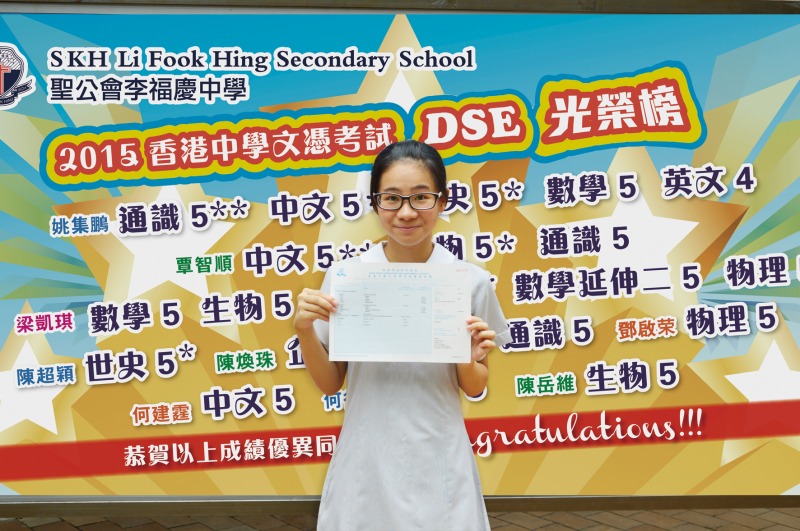 SKH Li Fook Hing Secondary School
聖公會李福慶中學
2015 香港中學文憑考試 DSE 光榮榜
姚集鵬 通識 5** 中文 5 史 5* 數學 5 英文 4
覃智順 中文 5** 物 5* 通識 5
梁凱琪 數學 5 生物 5 數學延伸二 5 物理 5
陳超穎 世史 5* 陳煥珠 通識 5 鄧啟荣 物理 5
何建霆 中文 5 何 陳岳維 生物 5
恭賀以上成績優異同 ngratulations!!!